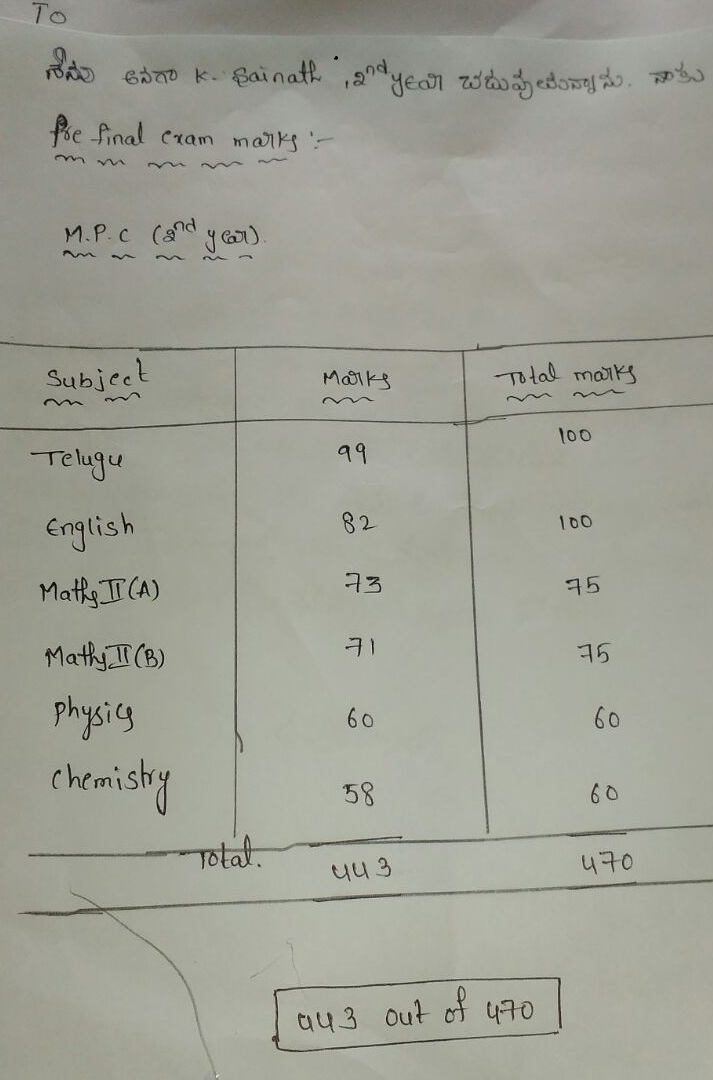 To
నేను అనగా K. Sainath, 2nd year చదువుతున్నాను. నాకు
Pre final exam marks :-
M.P.C (2nd year).
Subject Marks Total marks
Telugu 99 100
English 82 100
Maths II (A) 73 75
Maths II (B) 71 75
Physics 60 60
Chemistry 58 60
Total. 443 470
443 out of 470